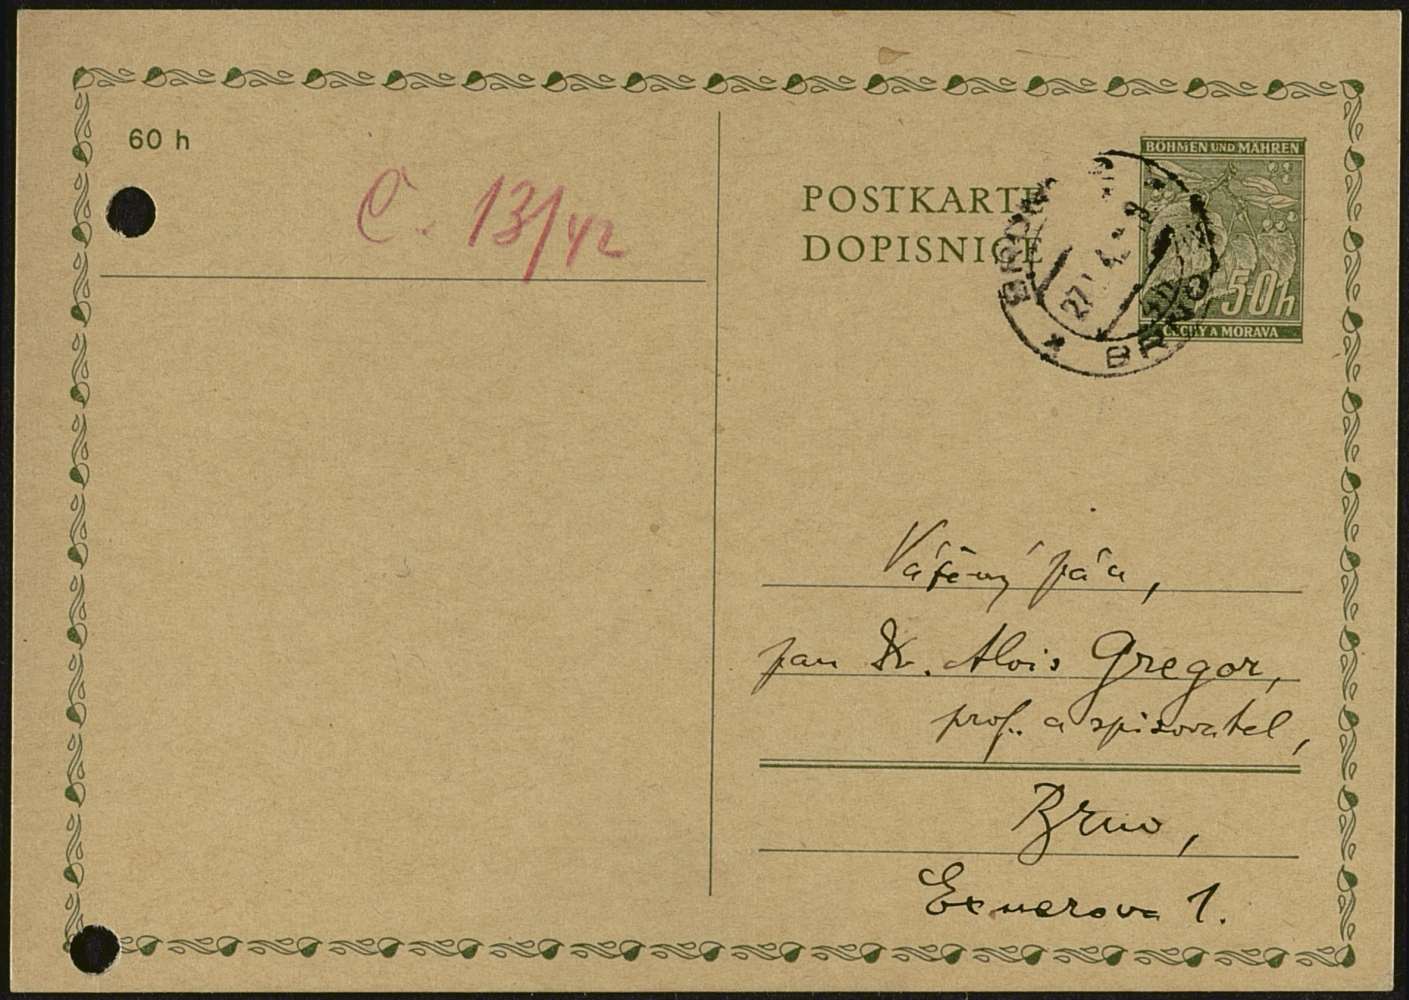 60 h
C. 13/42
POSTKARTE
DOPISNICE
BÖHMEN UND MÄHREN
50h
ČECHY A MORAVA
BRNO
27
Vážený pán,
pan Dr. Alois Gregor,
prof. a spisovatel,
Brno,
Exnerova 1.